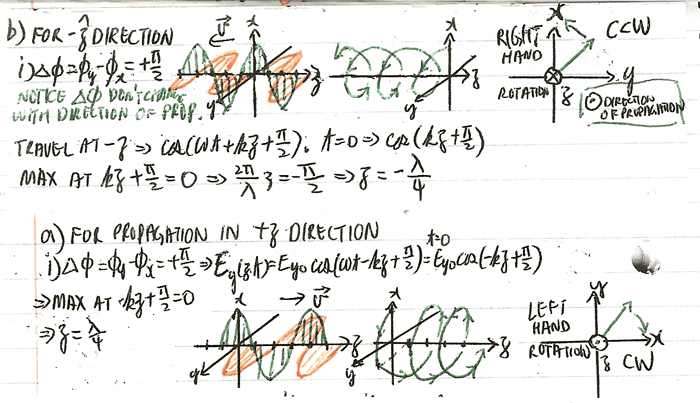 b) FOR -ẑ DIRECTION
i) Δϕ=ϕy-ϕx=+π/2
NOTICE Δϕ DON'T CHANGE
WITH DIRECTION OF PROP.
x
v⃗
z
y
x
z
y
RIGHT
HAND
ROTATION
x
CCW
y
z
DIRECTION
OF PROPAGATION
TRAVEL AT -z ⇒ cos(ωt+kz+π/2). t=0 ⇒ cos(kz+π/2)
MAX AT kz+π/2=0 ⇒ 2π/λ z=-π/2 ⇒ z=-λ/4
a) FOR PROPAGATION IN +z DIRECTION
i) Δϕ=ϕy-ϕx=+π/2 ⇒ Ey(z,t)=Ey0 cos(ωt-kz+π/2) t=0 = Ey0 cos(-kz+π/2)
⇒ MAX AT -kz+π/2=0
⇒ z=λ/4
x
v⃗
z
y
x
z
y
LEFT
HAND
ROTATION
y
x
z
CW